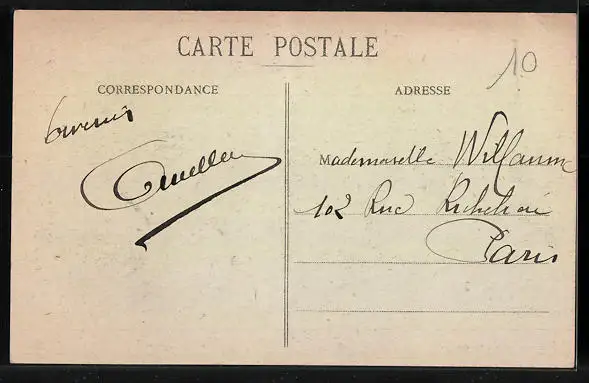 CARTE POSTALE
10
CORRESPONDANCE
ADRESSE
Souvenir
Mademoiselle
102 Rue Richelieu
Paris